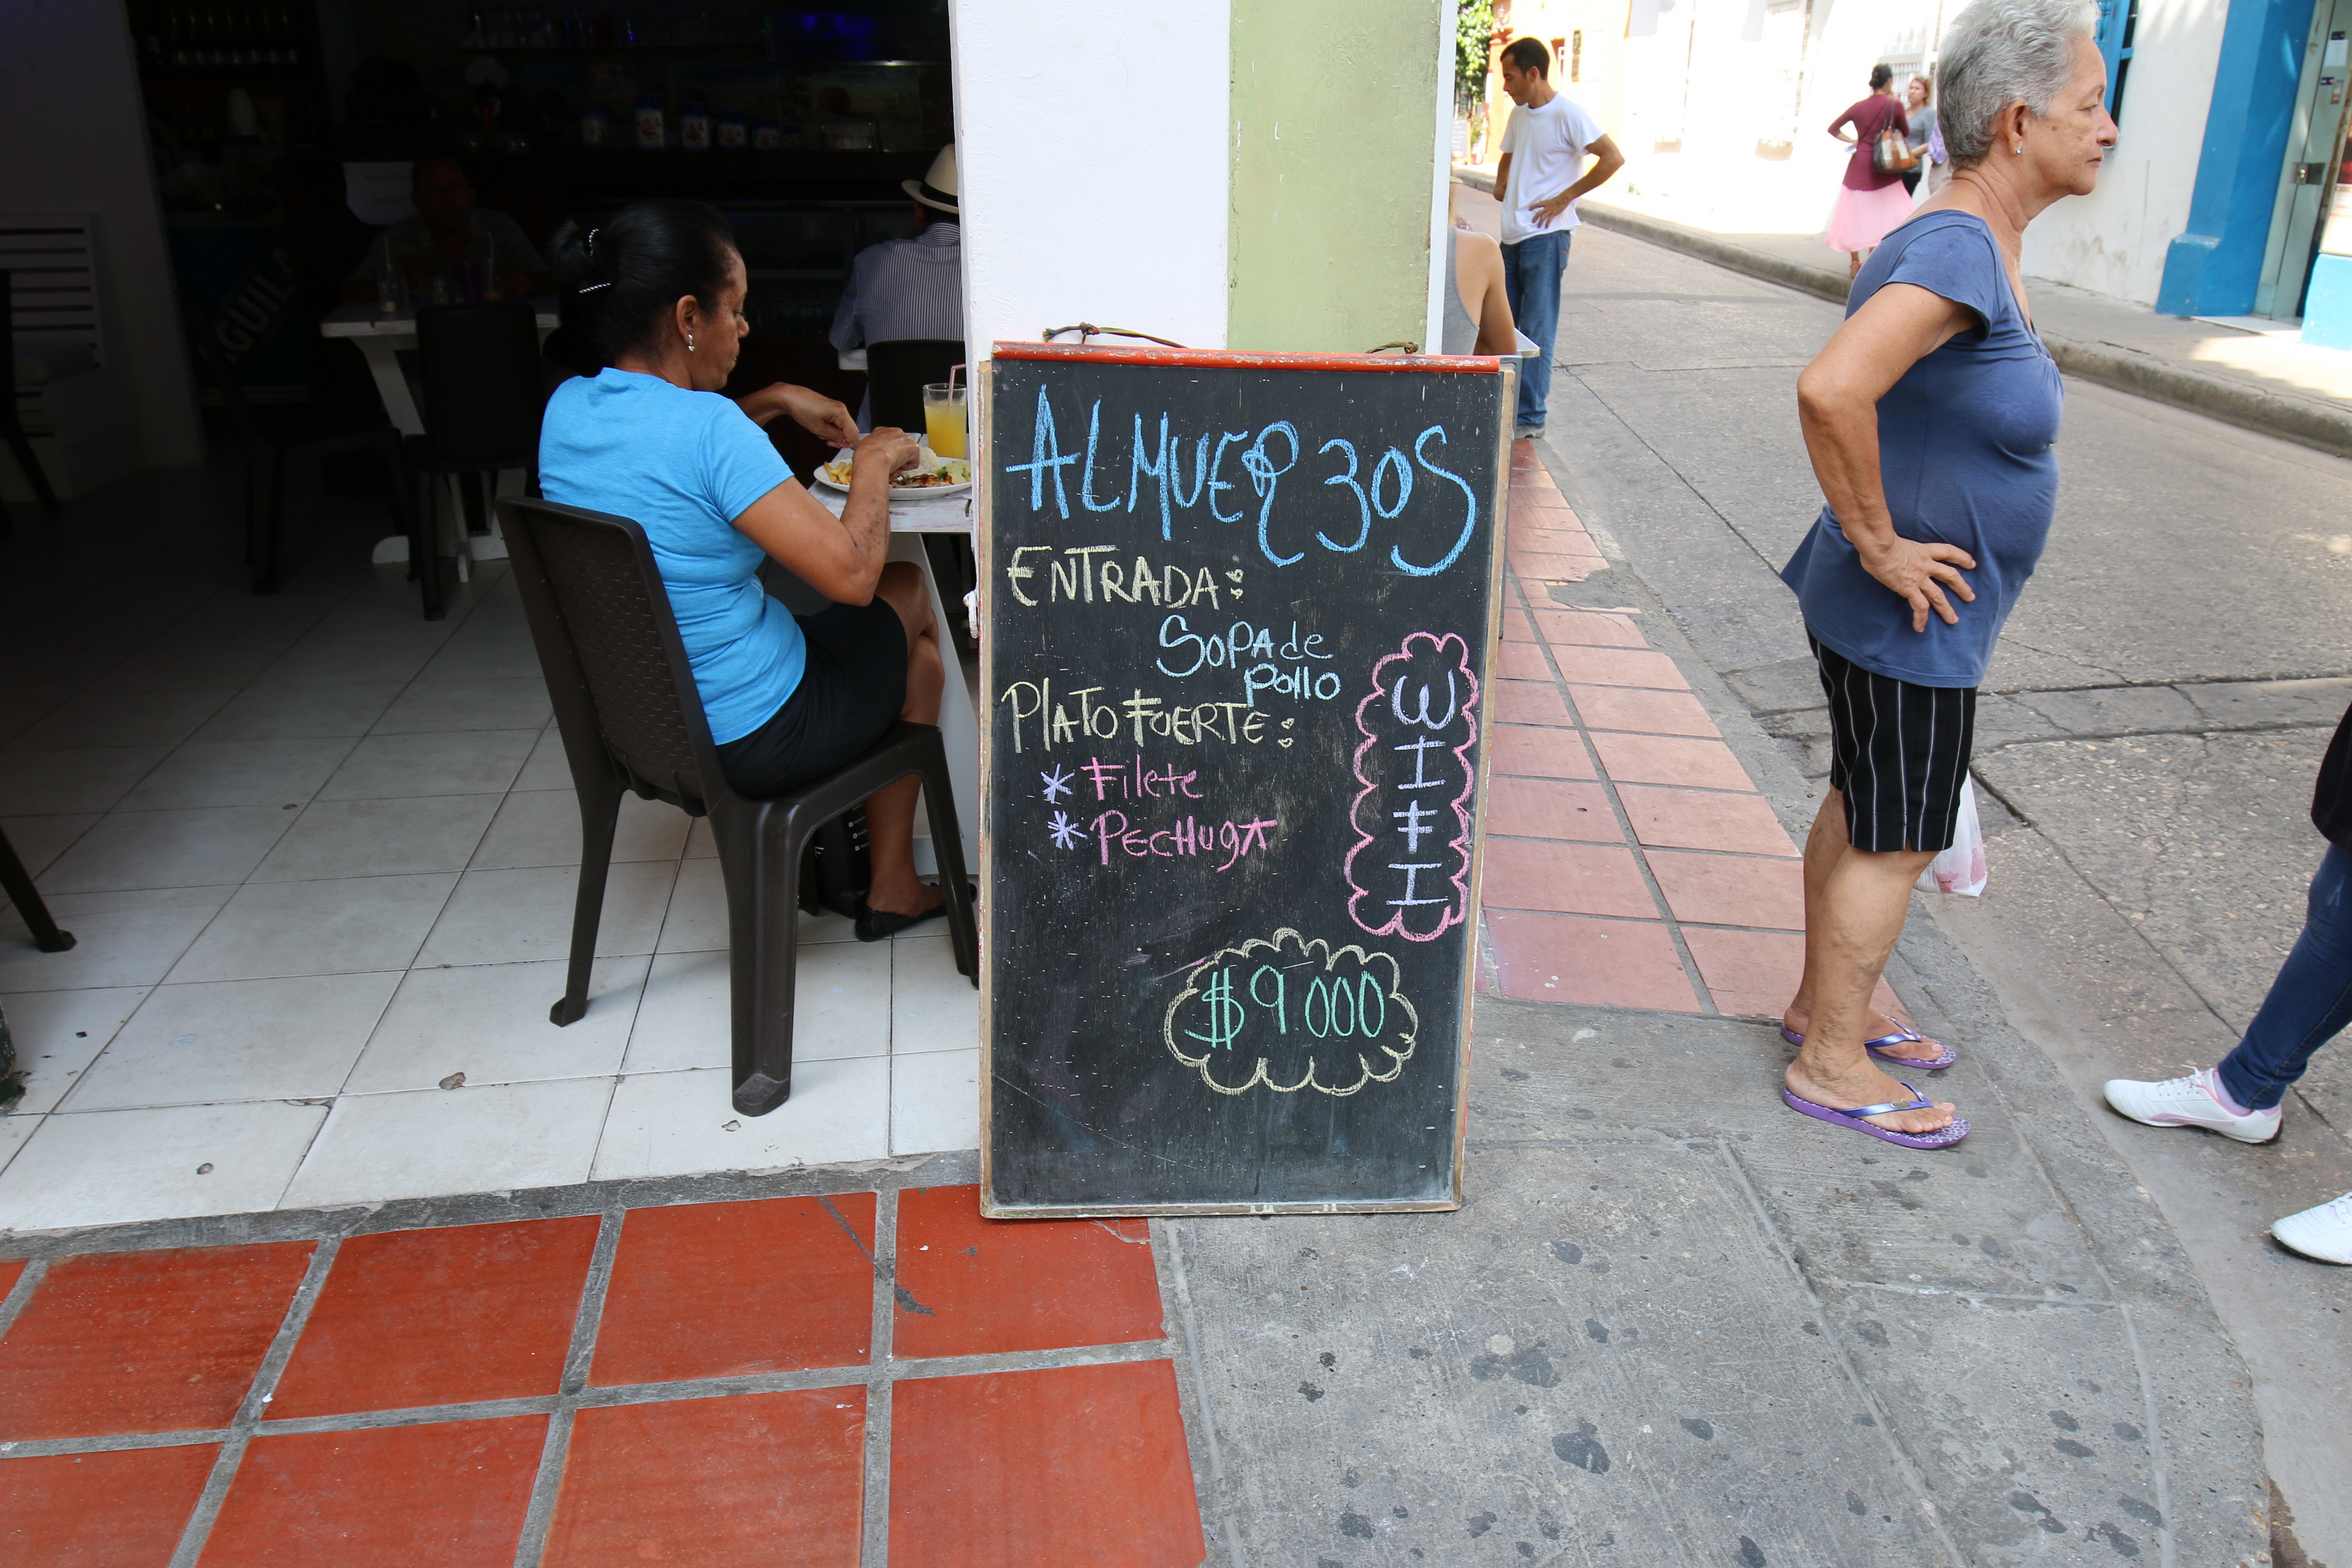 ALMUERZOS
ENTRADA:
SOPA de
pollo
PLATO FUERTE:
* Filete
* PECHUGA
WIFI
$9'000
AGUILA